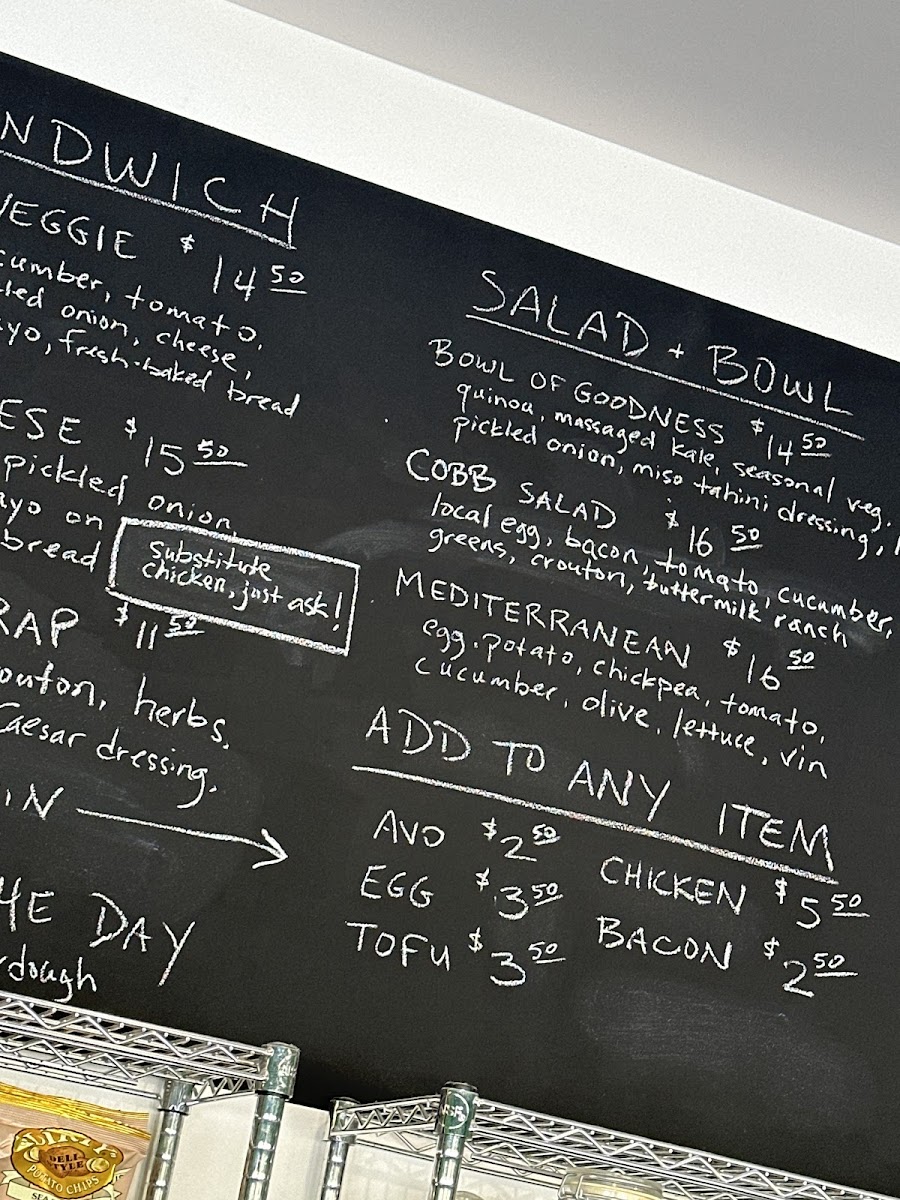 NDWICH
VEGGIE $14 50
cumber, tomato,
led onion, cheese,
yo, fresh-baked bread
ESE $15 50
pickled onion,
ayo on
bread
Substitute
chicken, just ask!
RAP $11 50
outon, herbs,
Caesar dressing,
IN →
HE DAY
dough
SALAD + BOWL
BOWL OF GOODNESS $14 50
quinoa, massaged kale, seasonal veg.
pickled onion, miso tahini dressing,
COBB SALAD $16 50
local egg, bacon, tomato, cucumber,
greens, crouton, buttermilk ranch
MEDITERRANEAN $16 50
egg, potato, chickpea, tomato,
cucumber, olive, lettuce, vin
ADD TO ANY ITEM
AVO $2 50
EGG $3 50
TOFU $3 50
CHICKEN $5 50
BACON $2 50
DIRTY
DELI STYLE
POTATO CHIPS
SEA